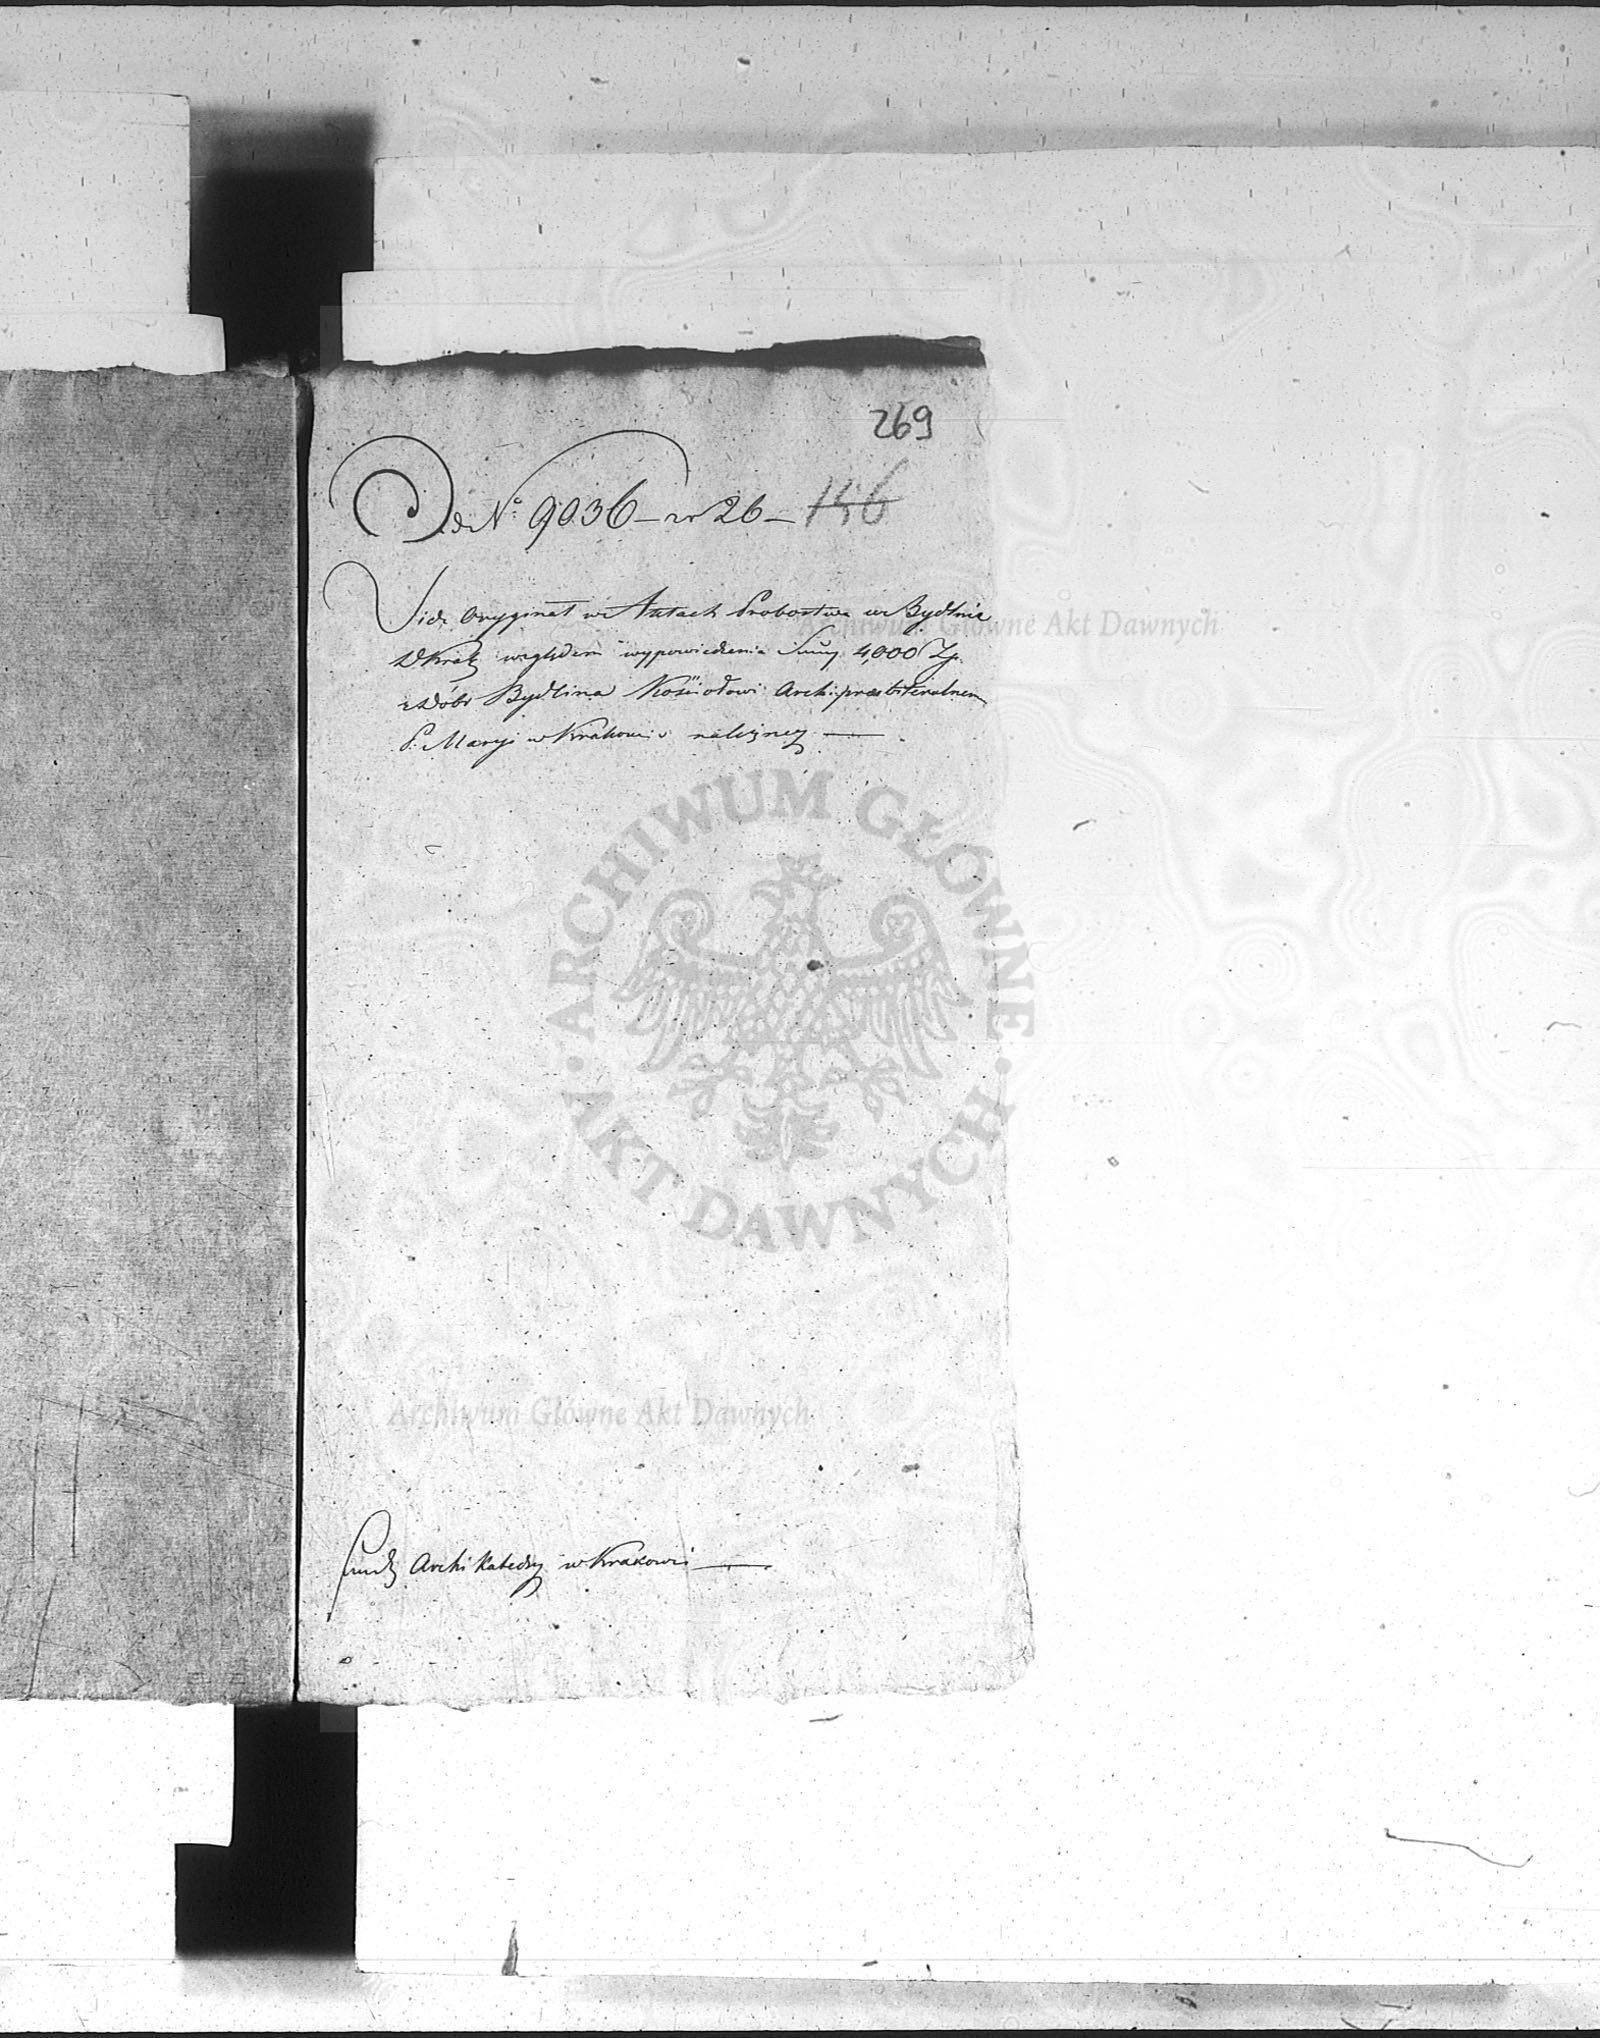 269
Ad N.° 9036 – r 26 – 156
Vide Oryginał w Aktach Probostwa w Bydlinie
względem wypowiedzenia Sumy 4,000 Zp.
z Dóbr Bydlina Kościołowi Archipresbiteralnem
P. Maryi w Krakowie należnej —
Archi Katedry w Krakowie —
Archiwum Główne Akt Dawnych
ARCHIWUM GŁÓWNE AKT DAWNYCH
Archiwum Główne Akt Dawnych